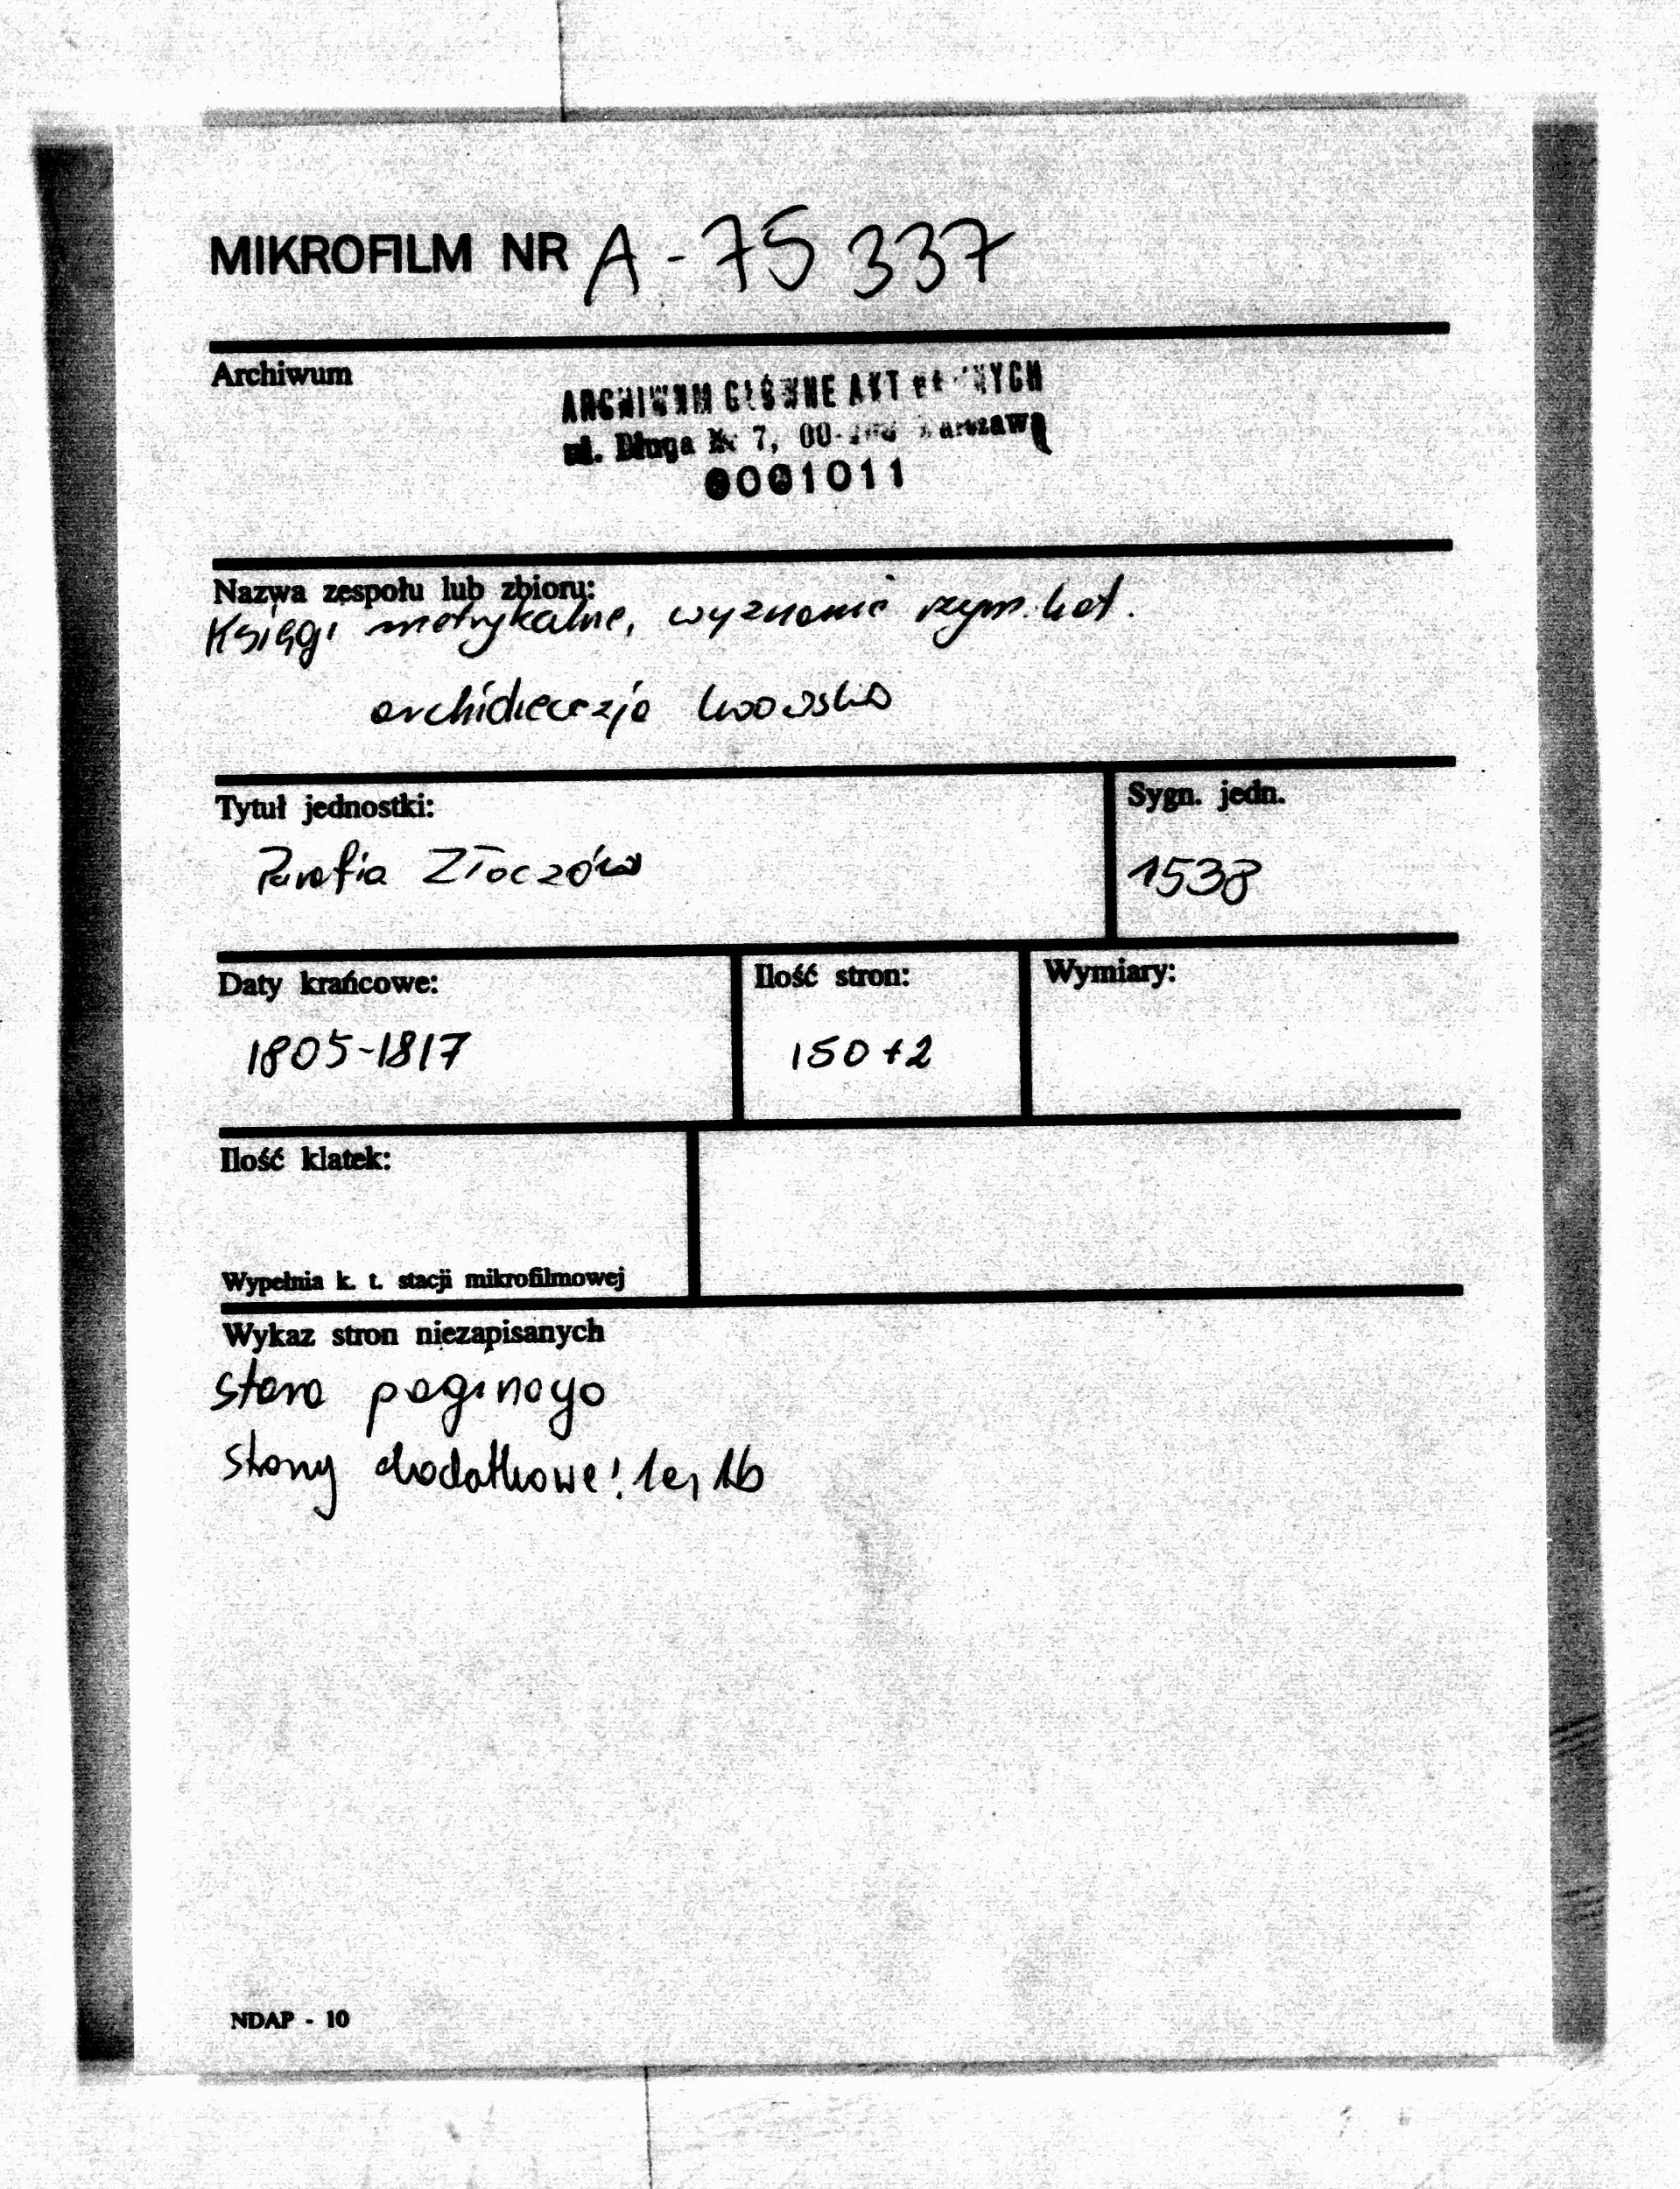 MIKROFILM NR A-75 337
Archiwum
ARCHIWUM GŁÓWNE AKT DAWNYCH
ul. Długa Nr 7, 00- Warszawa
0001011
Nazwa zespołu lub zbioru:
Księgi metrykalne, wyznanie rzym. kat.
archidiecezja lwowska
Tytuł jednostki:
Sygn. jedn.
Parafia Złoczów
1538
Daty krańcowe:
Ilość stron:
Wymiary:
1805-1817
150+2
Ilość klatek:
Wypełnia k. t. stacji mikrofilmowej
Wykaz stron niezapisanych
stara paginacja
strony dodatkowe: 1a, 1b
NDAP - 10